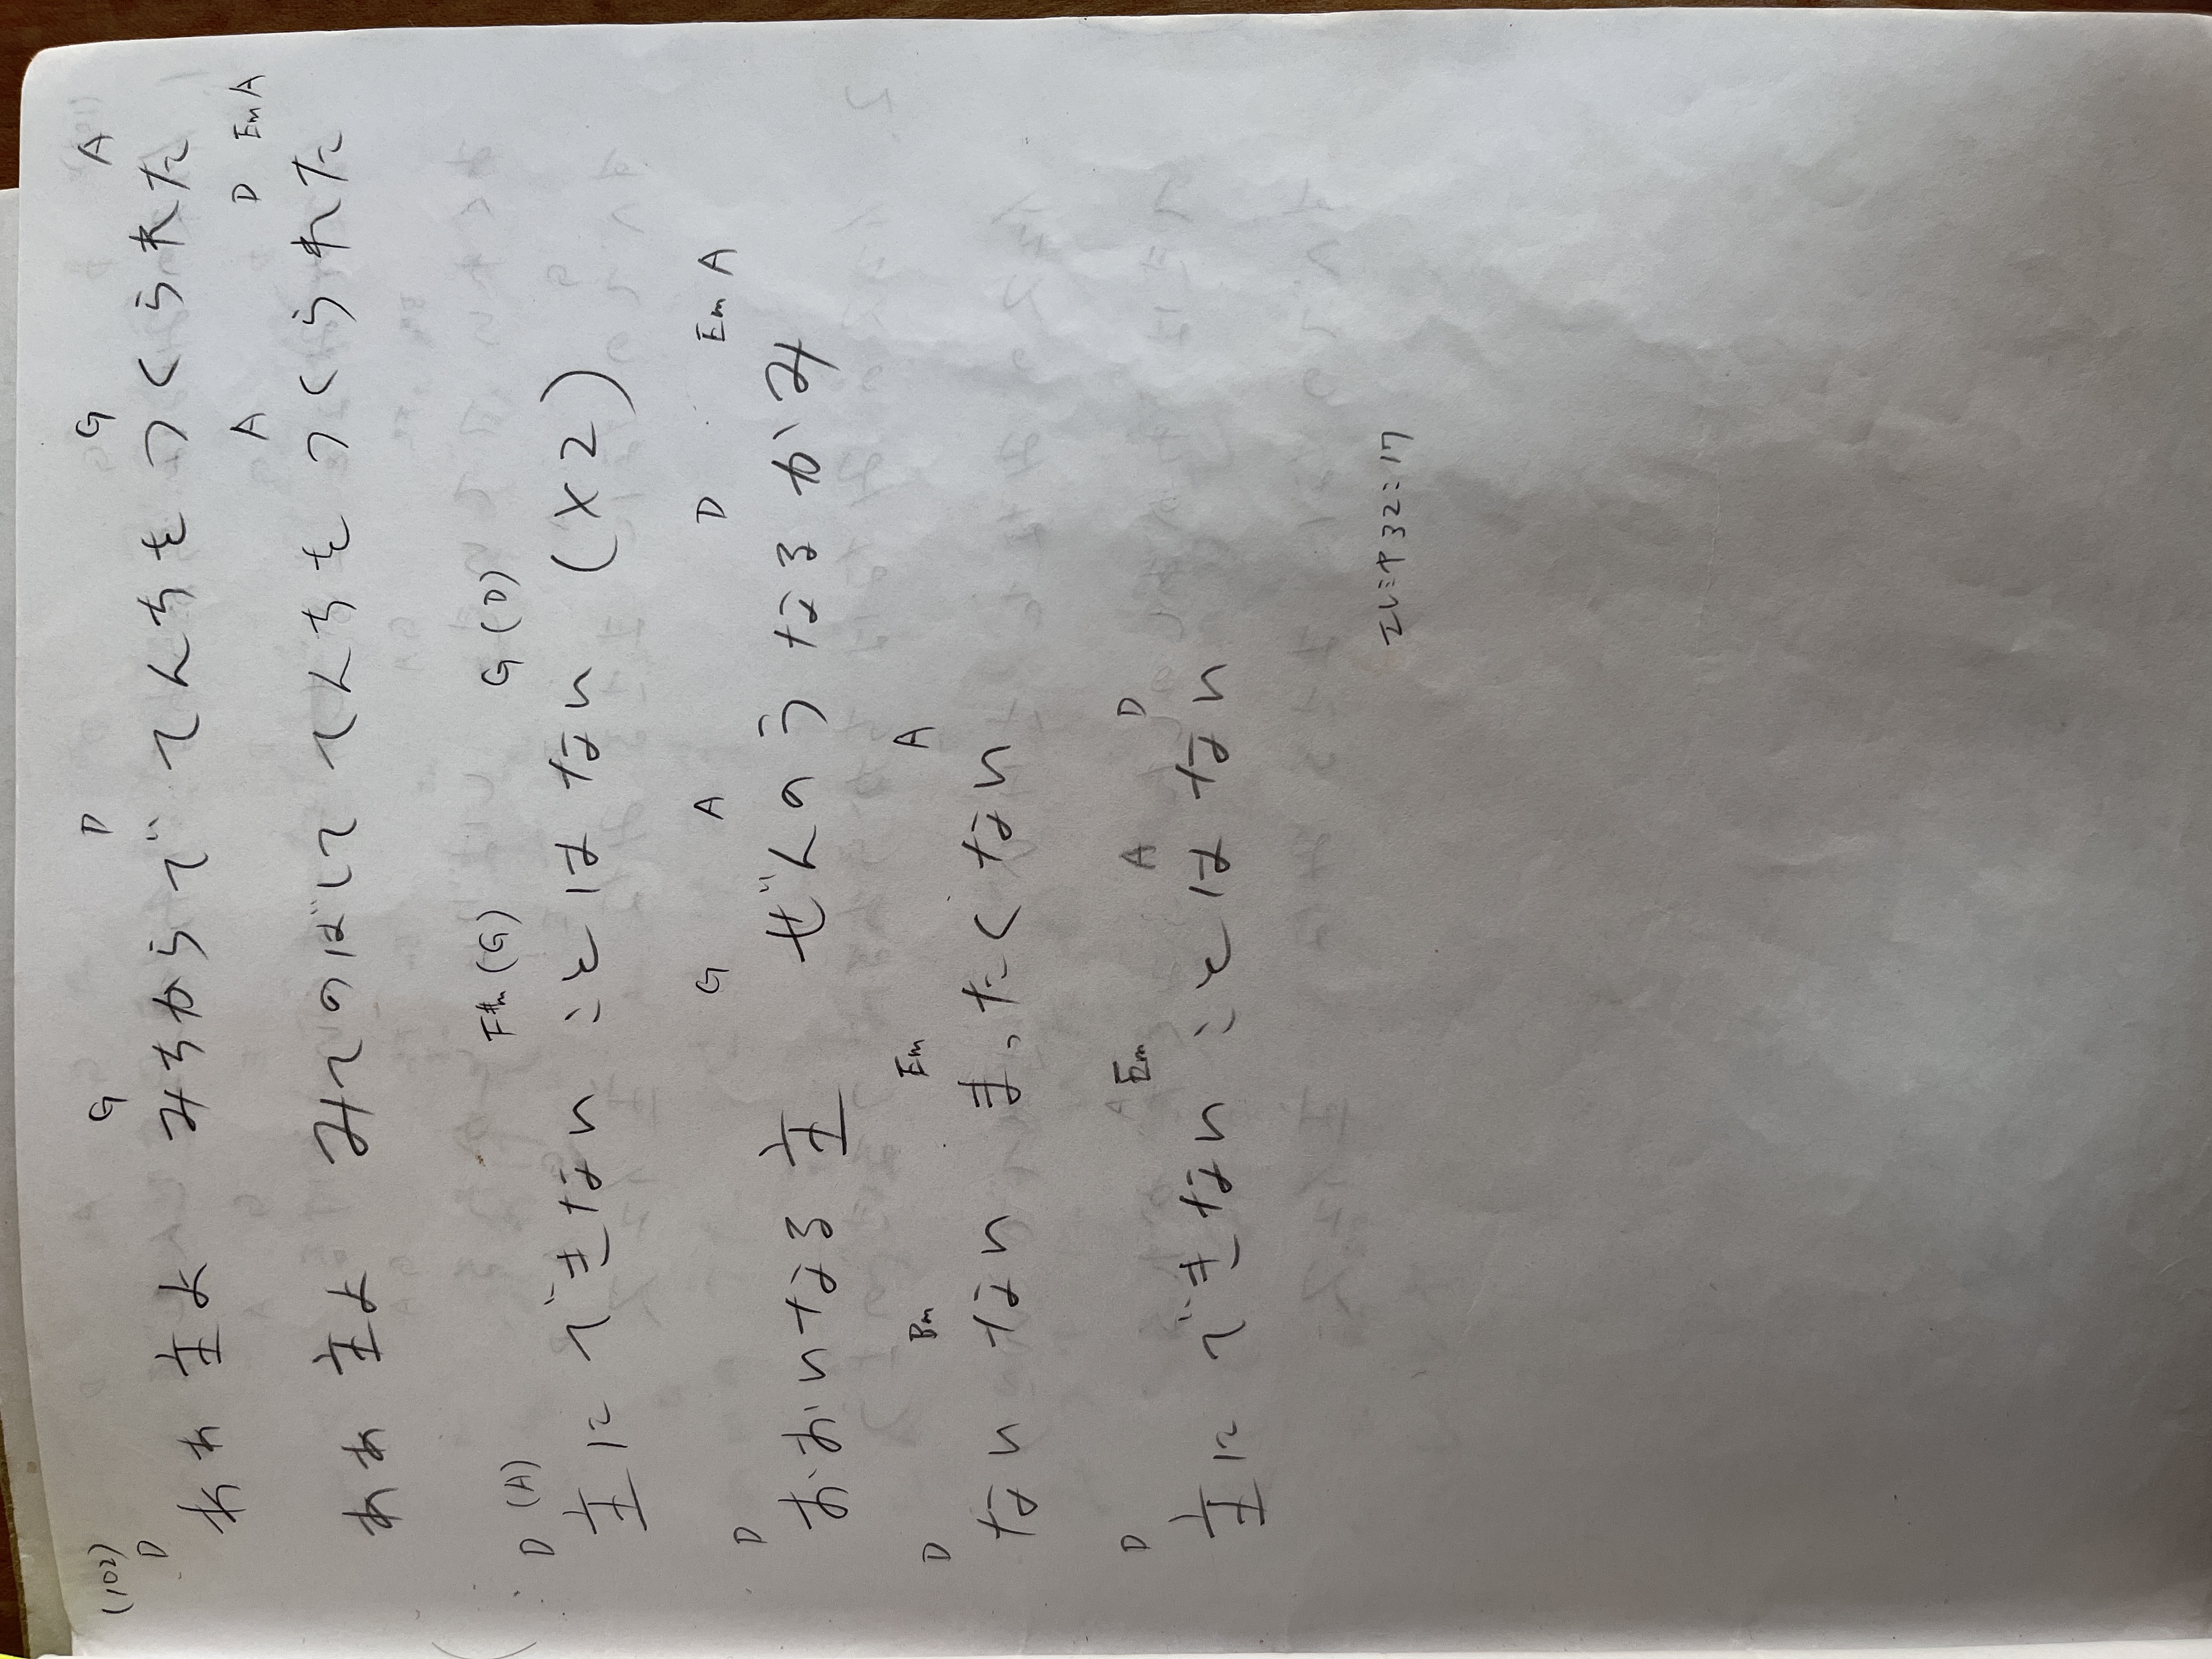 (102)
D G D G A
ああ 主よ みちからで てんちをつくられた
A D Em A
ああ 主よ みてのばして てんちをつくられた
D (A) F#m (G) G (D)
主に できない ことは ない (×2)
D G A D Em A
おおいなる 主 ぜんのうなるかみ
D Bm Em A
ない ない まったくない
D Em A D
主に できない ことは ない
エレミヤ 32:17